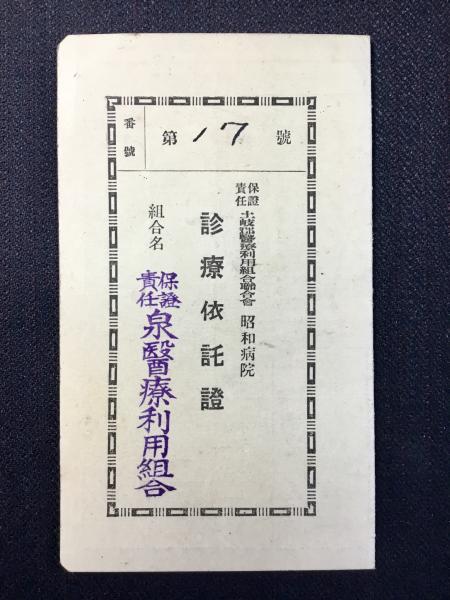 番號
第 17 號
保證責任 土岐郡醫療利用組合聯合會 昭和病院
診療依託證
組合名
保證責任 泉醫療利用組合